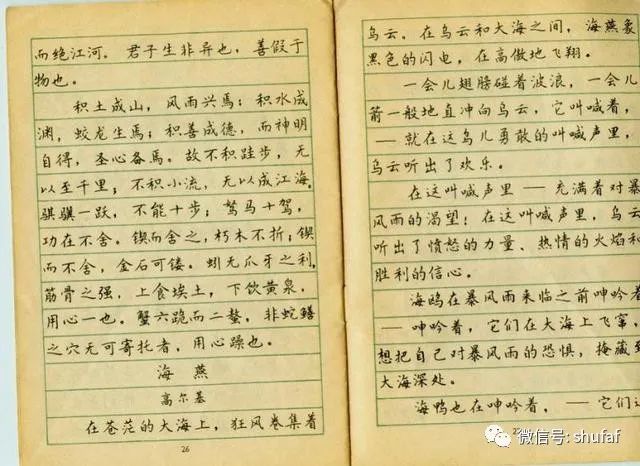 而绝江河。君子生非异也，善假于
物也。
积土成山，风雨兴焉；积水成
渊，蛟龙生焉；积善成德，而神明
自得，圣心备焉。故不积跬步，无
以至千里；不积小流，无以成江海。
骐骥一跃，不能十步；驽马十驾，
功在不舍。锲而舍之，朽木不折；锲
而不舍，金石可镂。蚓无爪牙之利，
筋骨之强，上食埃土，下饮黄泉，
用心一也。蟹六跪而二螯，非蛇鳝
之穴无可寄托者，用心躁也。
海燕
高尔基
在苍茫的大海上，狂风卷集着
26
乌云。在乌云和大海之间，海燕象
黑色的闪电，在高傲地飞翔。
一会儿翅膀碰着波浪，一会儿
箭一般地直冲向乌云，它叫喊着，
— 就在这鸟儿勇敢的叫喊声里，
乌云听出了欢乐。
在这叫喊声里 — 充满着对暴
风雨的渴望！在这叫喊声里，乌云
听出了愤怒的力量、热情的火焰和
胜利的信心。
海鸥在暴风雨来临之前呻吟着
— 呻吟着，它们在大海上飞窜，
想把自己对暴风雨的恐惧，掩藏到
大海深处。
海鸭也在呻吟着， — 它们
微信号: shufaf